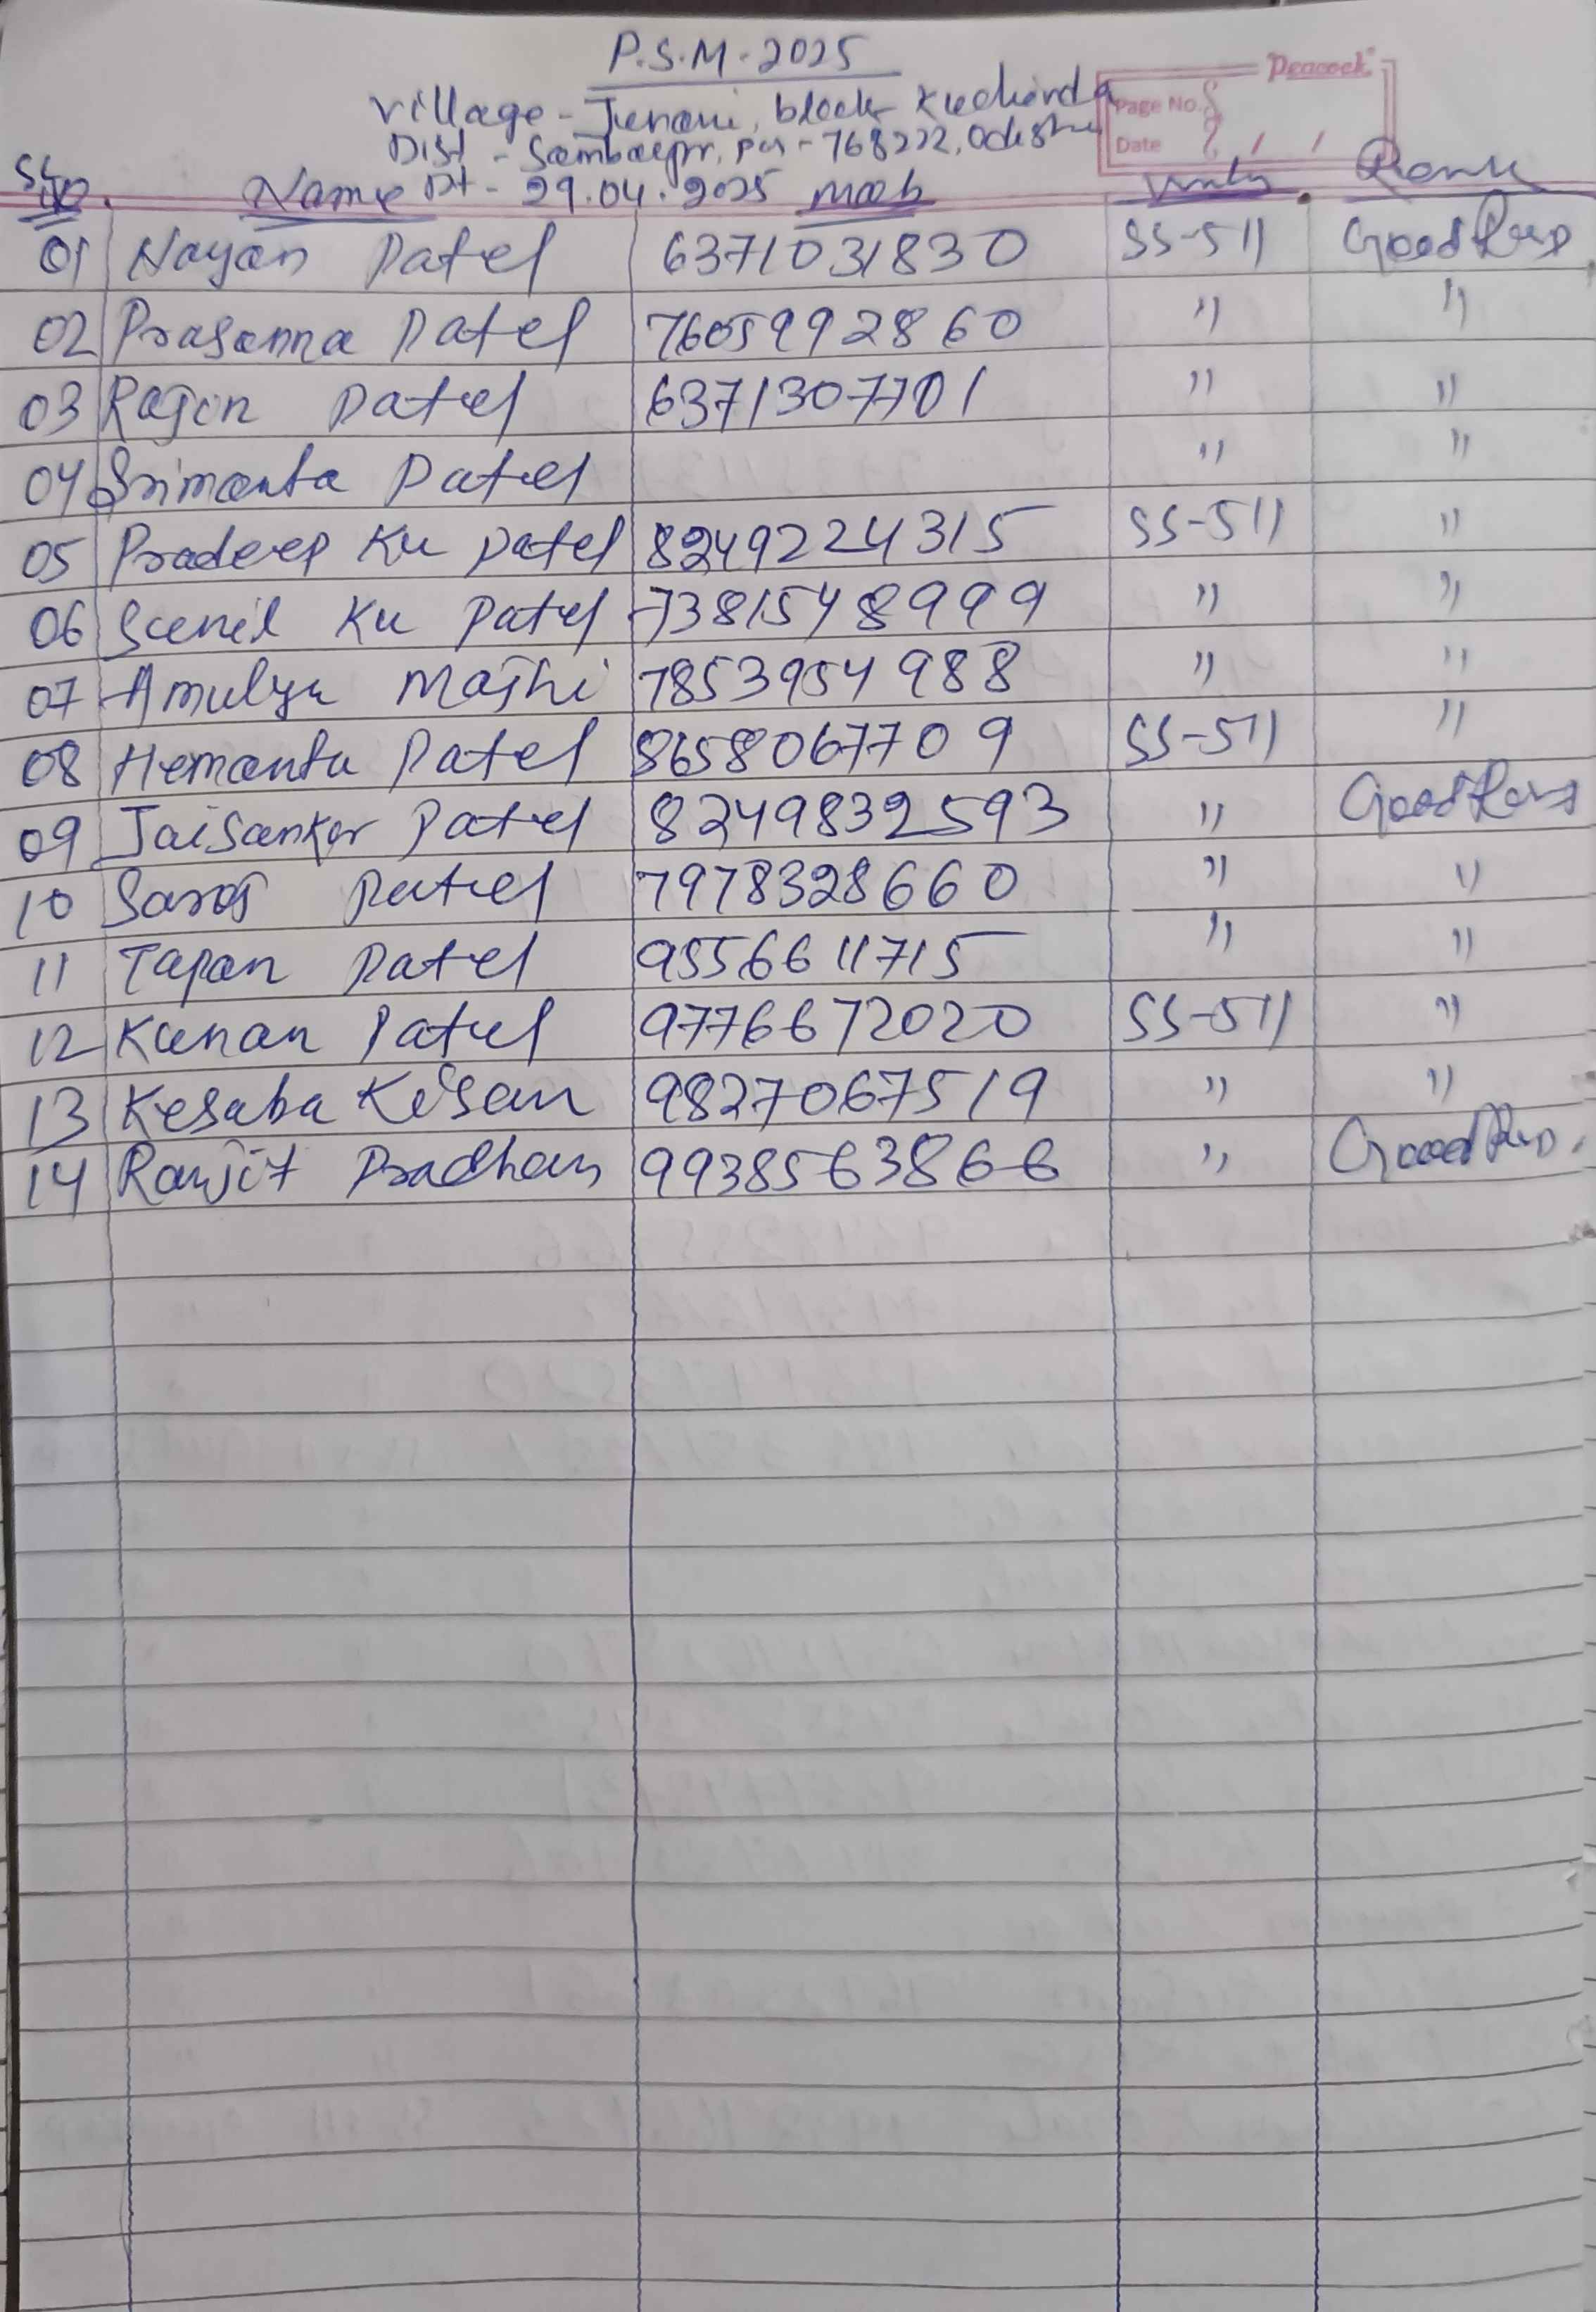 P.S.M. 2025
Peacock
Village - Junani, block Kuchinda
Page No.
Dist - Sambalpur, Pin - 768222, Odisha
Date / /
SL No. Name Dt - 29.04.2025 mob
01 Nayan Patel 6371031830 SS-511 Good
02 Prasanna Patel 7605992860 " "
03 Rajen Patel 6371307701 " "
04 Srimanta Patel " "
05 Pradeep Ku Patel 8249224315 SS-511 "
06 Sunil Ku Patel 7381548999 " "
07 Amulya Majhi 7853954988 " "
08 Hemanta Patel 8658067709 SS-511 "
09 Jaisankar Patel 8249832593 " Good
10 Saroj Patel 7978328660 " "
11 Tapan Patel 9556611715 " "
12 Kunan Patel 9776672020 SS-511 "
13 Kesaba Kisan 9827067519 " "
14 Ranjit Pradhan 9938563866 " Good